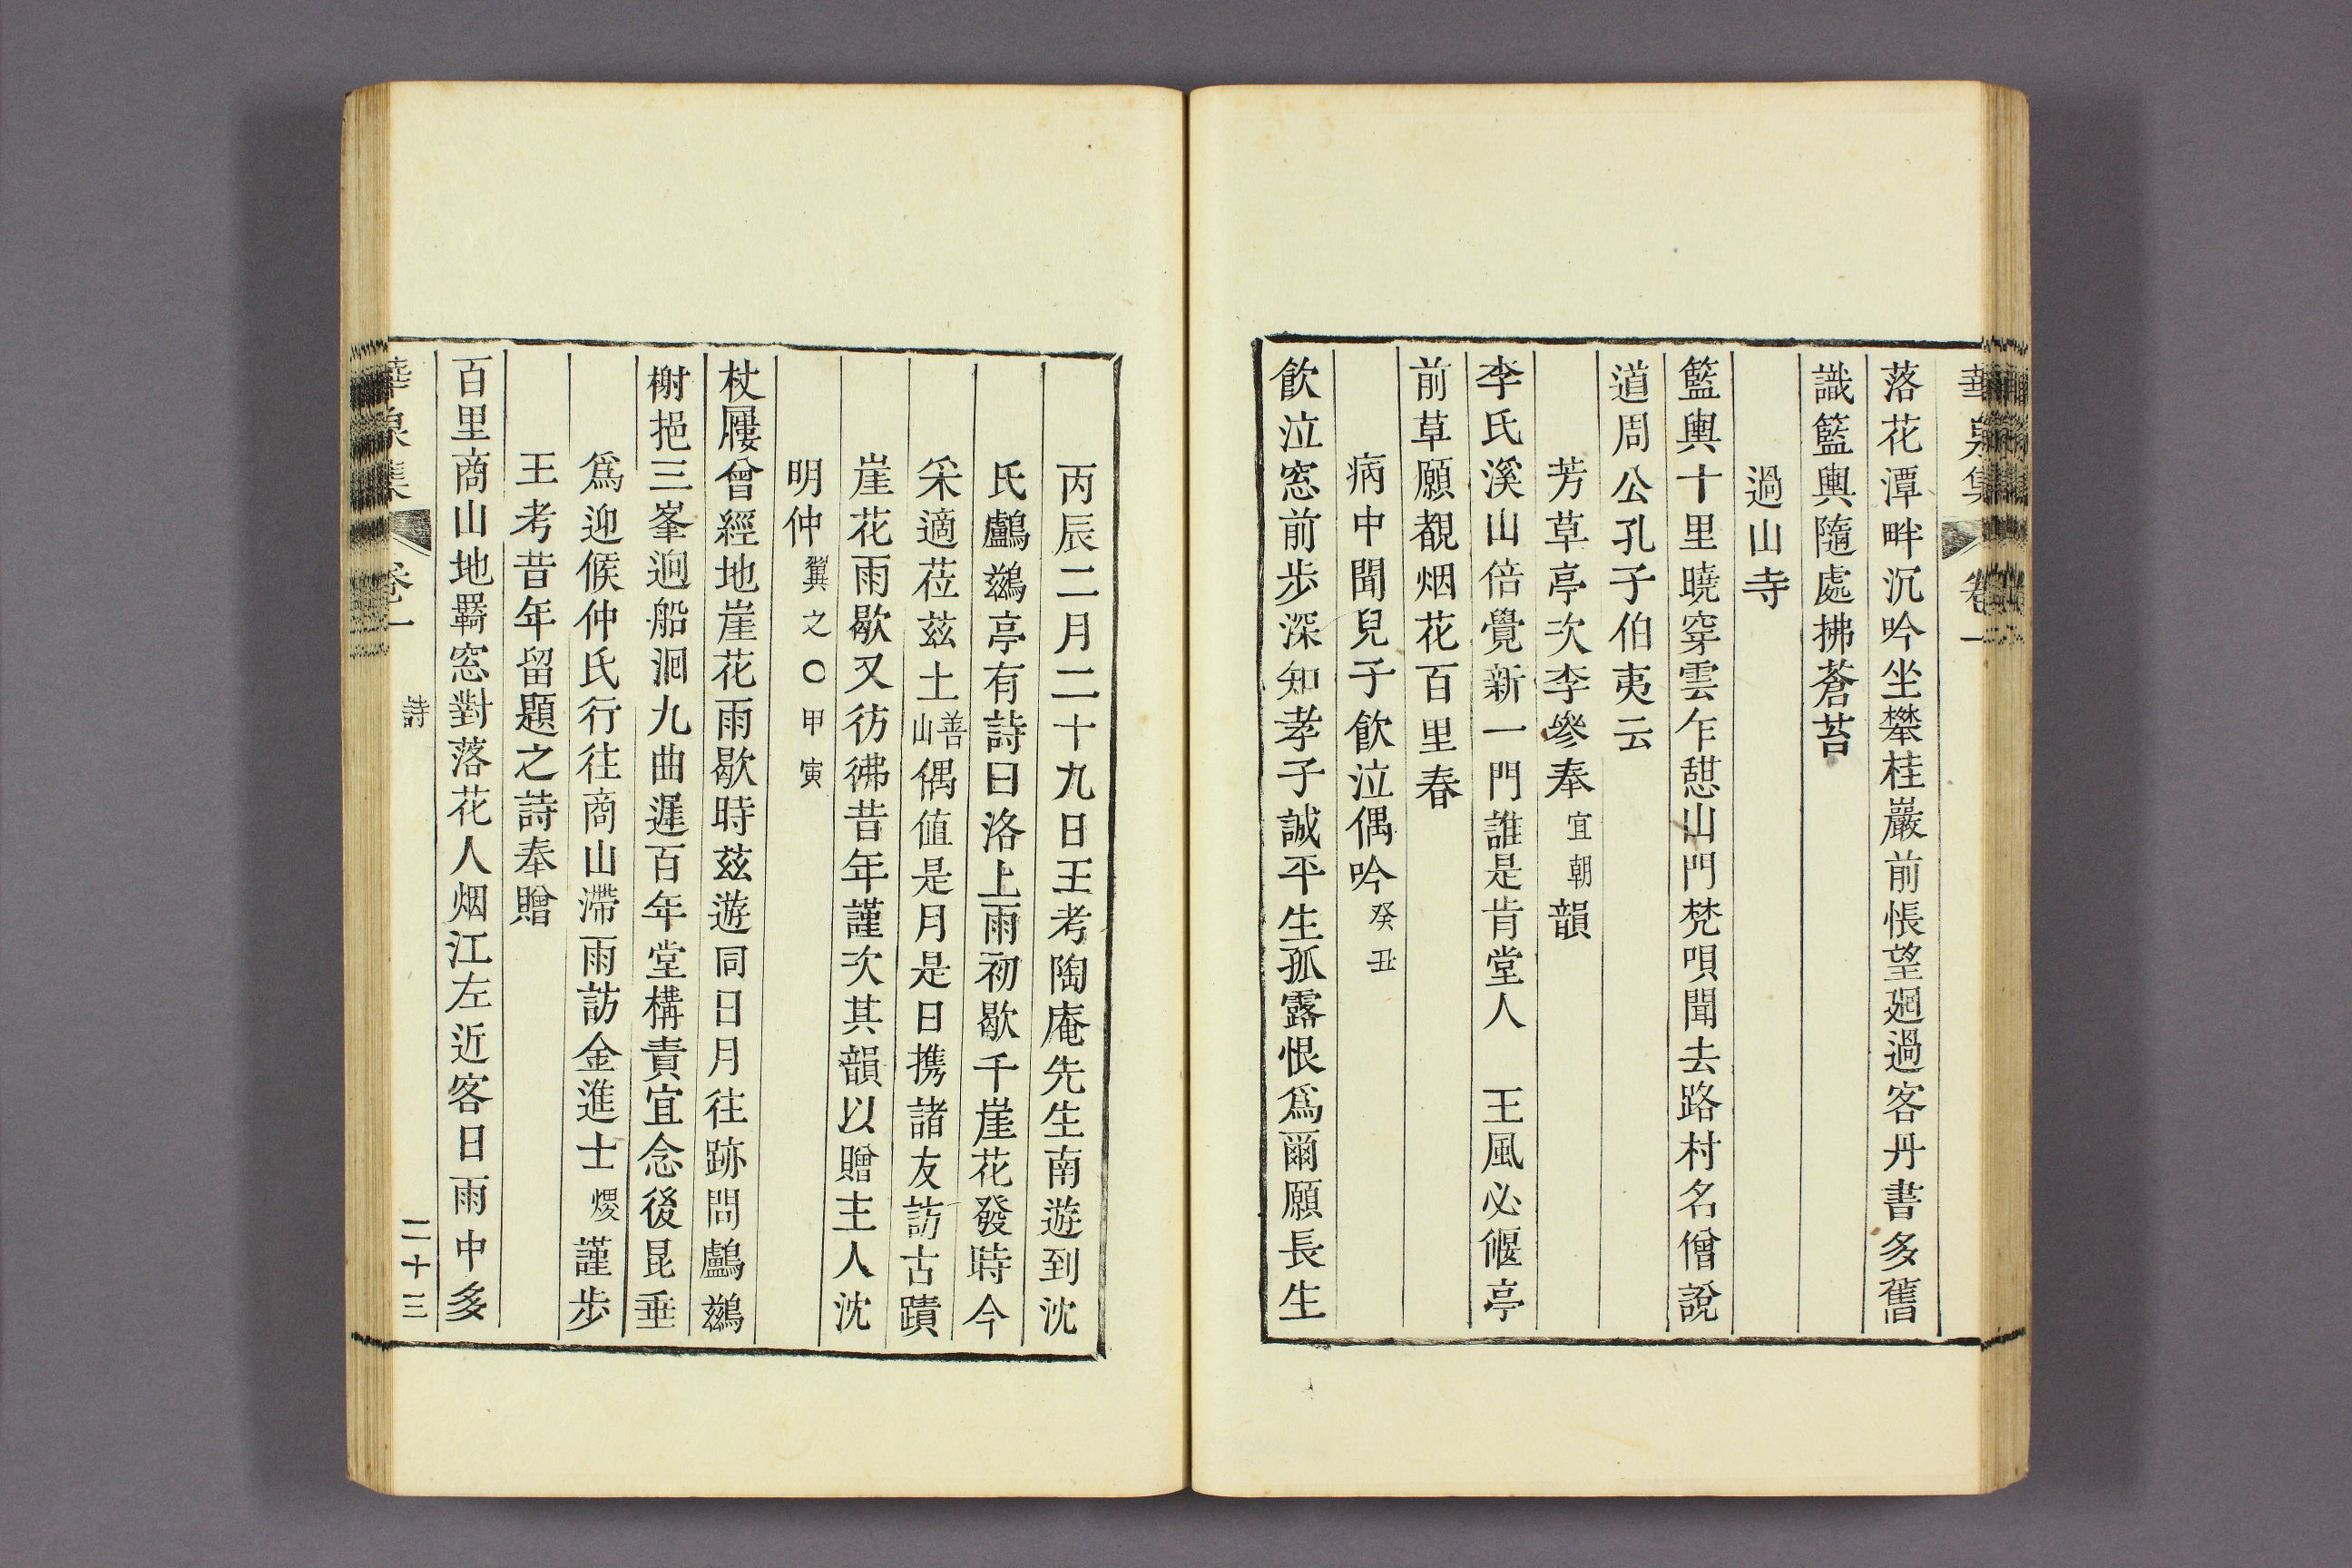 華泉集 卷一
落花潭畔沉吟坐攀桂巖前悵望廻過客丹書多舊
識籃輿隨處拂蒼苔
過山寺
籃輿十里曉穿雲乍憇山門梵唄聞去路村名僧說
道周公孔子伯夷云
芳草亭次李參奉宜朝韻
李氏溪山倍覺新一門誰是肯堂人 王風必偃亭
前草願覩烟花百里春
病中聞兒子飮泣偶吟癸丑
飮泣窓前步深知孝子誠平生孤露恨爲爾願長生
丙辰二月二十九日王考陶庵先生南遊到沈
氏鸕鷀亭有詩曰洛上雨初歇千崖花發時今
釆適莅玆土善山偶値是月是日携諸友訪古蹟
崖花雨歇又彷彿昔年謹次其韻以贈主人沈
明仲翼之〇甲寅
杖屨曾經地崖花雨歇時玆遊同日月往跡問鸕鷀
榭挹三峯逈船洄九曲遲百年堂構責宜念後昆垂
爲迎候仲氏行往商山滯雨訪金進士㷞謹步
王考昔年留題之詩奉贈
百里商山地羇窓對落花人烟江左近客日雨中多
華泉集 卷一 詩 二十三